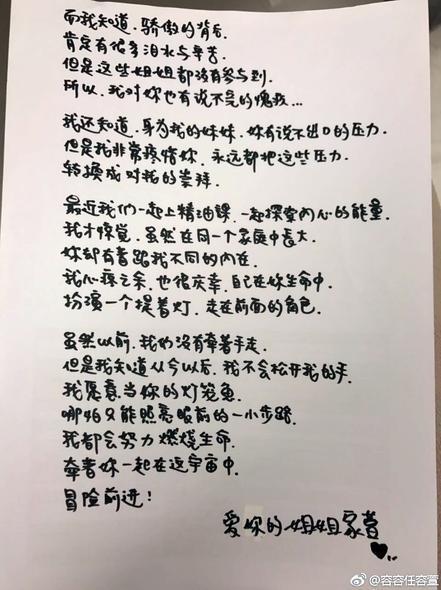 而我知道.骄傲的背后.
肯定有很多泪水与辛苦.
但是这些姐姐都没有参与到.
所以.我对妳也有说不完的愧疚...
我还知道.身为我的妹妹.妳有说不出口的压力.
但是我非常疼惜妳.永远都把这些压力.
转换成对我的崇拜.
最近我们一起上精油课.一起探索内心的能量.
我才惊觉.虽然在同一个家庭中长大.
妳却有着跟我不同的内在.
我心疼之余.也很庆幸.自己在妳生命中.
扮演一个提着灯.走在前面的角色.
虽然以前.我们没有牵着手走.
但是我知道从今以后.我不会松开我的手.
我愿意当你的灯笼鱼.
哪怕只能照亮眼前的一小步路.
我都会努力燃烧生命.
牵着妹一起在这宇宙中.
冒险前进!
爱你的姐姐家萱
@容容任容萱